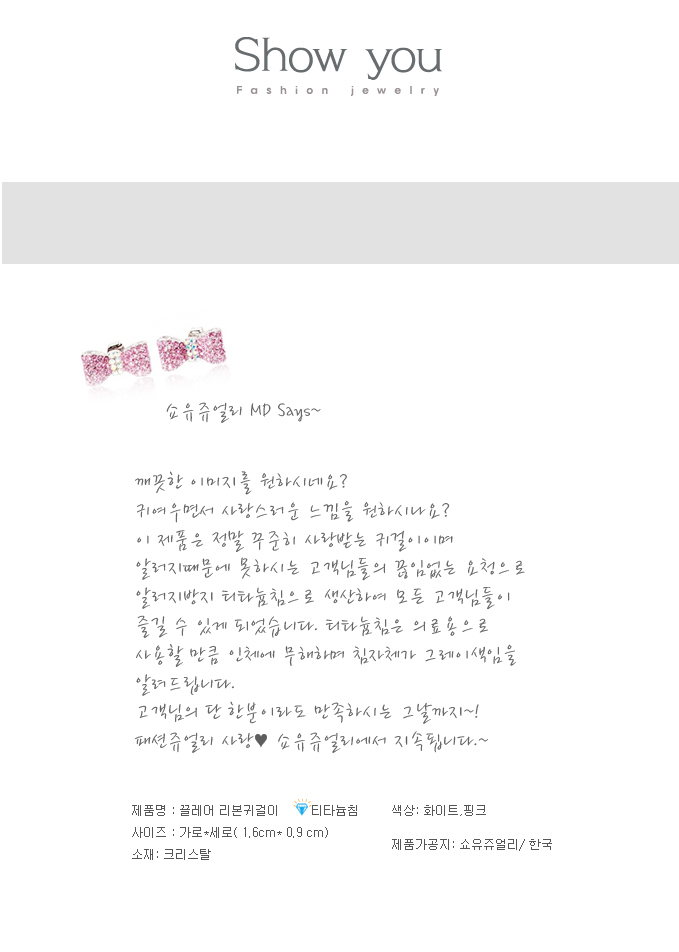 Show you
Fashion jewelry
쇼유쥬얼리 MD Says~
깨끗한 이미지를 원하시네요?
귀여우면서 사랑스러운 느낌을 원하시나요?
이 제품은 정말 꾸준히 사랑받는 귀걸이이며
알러지때문에 못하시는 고객님들의 끊임없는 요청으로
알러지방지 티타늄침으로 생산하여 모든 고객님들이
즐길 수 있게 되었습니다. 티타늄침은 의료용으로
사용할 만큼 인체에 무해하며 침자체가 그레이색임을
알려드립니다.
고객님의 단 한분이라도 만족하시는 그날까지~!
패션쥬얼리 사랑♥ 쇼유쥬얼리에서 지속됩니다.~
제품명 : 끌레어 리본귀걸이 티타늄침
색상: 화이트,핑크
사이즈 : 가로*세로( 1.6cm* 0.9 cm)
제품가공지: 쇼유쥬얼리/ 한국
소재: 크리스탈